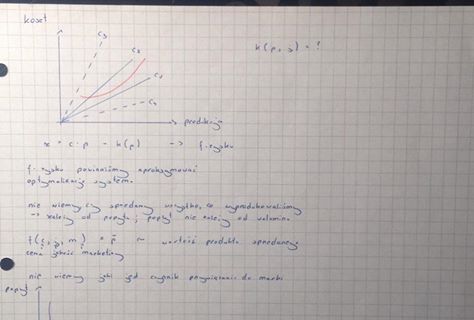 koszt
c₃
c₂
c₁
c₄
k(p, j) = ?
produkcja
x = c · p - k(p) -> f. zysku
f. zysku powinniśmy aproksymować
optymalizując system.
nie wiemy czy sprzedamy wszystko, co wyprodukowaliśmy
-> zależy od popytu; popyt nie zależy od
f(c, j, m) * p̄ ~ wartość produktu sprzedanego
cena jakość marketing
nie wiemy jaki jest czynnik przywiązania do marki
popyt